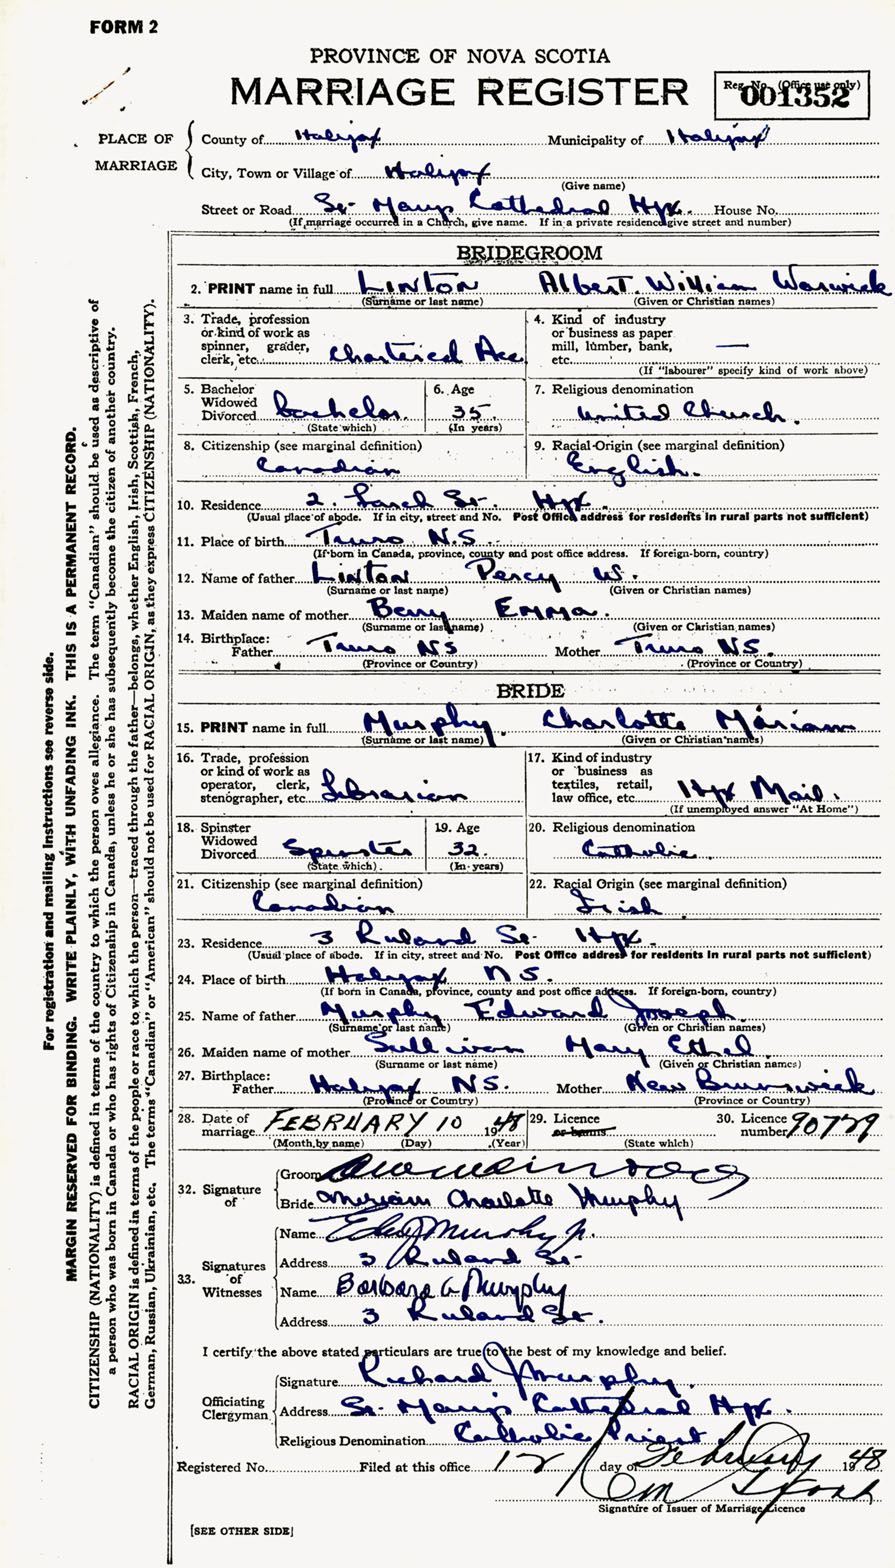 FORM 2
PROVINCE OF NOVA SCOTIA
MARRIAGE REGISTER
Reg. No. (Office use only)
001352
PLACE OF MARRIAGE
County of Halifax Municipality of Halifax
City, Town or Village of Halifax
(Give name)
Street or Road St. Marys Cathedral Hfx. House No.
(If marriage occurred in a Church, give name. If in a private residence give street and number)
BRIDEGROOM
2. PRINT name in full LINTON Albert William Warwick
(Surname or last name) (Given or Christian names)
3. Trade, profession or kind of work as spinner, grader, clerk, etc. Chartered Acc
4. Kind of industry or business as paper mill, lumber, bank, etc. —
(If "labourer" specify kind of work above)
5. Bachelor Widowed Divorced bachelor.
(State which)
6. Age 35
(In years)
7. Religious denomination United Church.
8. Citizenship (see marginal definition)
Canadian
9. Racial Origin (see marginal definition)
English.
10. Residence 2 Larch St. Hfx.
(Usual place of abode. If in city, street and No. Post Office address for residents in rural parts not sufficient)
11. Place of birth Truro N.S.
(If born in Canada, province, county and post office address. If foreign-born, country)
12. Name of father Linton Percy W.
(Surname or last name) (Given or Christian names)
13. Maiden name of mother Berry Emma.
(Surname or last name) (Given or Christian names)
14. Birthplace:
Father Truro NS Mother Truro NS.
(Province or Country) (Province or Country)
BRIDE
15. PRINT name in full Murphy. Charlotte Miriam
(Surname or last name) (Given or Christian names)
16. Trade, profession or kind of work as operator, clerk, stenographer, etc. Librarian
17. Kind of industry or business as textiles, retail, law office, etc. Hfx Mail.
(If unemployed answer "At Home")
18. Spinster Widowed Divorced Spinster
(State which)
19. Age 32
(In years)
20. Religious denomination
Catholic.
21. Citizenship (see marginal definition)
Canadian
22. Racial Origin (see marginal definition)
Irish
23. Residence 3 Ruland St. Hfx.
(Usual place of abode. If in city, street and No. Post Office address for residents in rural parts not sufficient)
24. Place of birth Halifax N.S.
(If born in Canada, province, county and post office address. If foreign-born, country)
25. Name of father Murphy Edward Joseph.
(Surname or last name) (Given or Christian names)
26. Maiden name of mother Sullivan Mary Ethel.
(Surname or last name) (Given or Christian names)
27. Birthplace:
Father Halifax N.S. Mother New Brunswick
(Province or Country) (Province or Country)
28. Date of marriage FEBRUARY 10 1948
(Month by name) (Day) (Year)
29. Licence or banns
(State which)
30. Licence number 90729
32. Signature of
Groom
Bride Miriam Charlotte Murphy
33. Signatures of Witnesses
Name Edw J Murphy jr.
Address 3 Ruland St.
Name Barbara G Murphy
Address 3 Ruland St.
I certify the above stated particulars are true to the best of my knowledge and belief.
Officiating Clergyman
Signature Richard J Murphy.
Address St. Mary's Cathedral Hfx.
Religious Denomination Catholic Priest.
Registered No. Filed at this office 12 day of February 1948
Signature of Issuer of Marriage Licence
[SEE OTHER SIDE]
For registration and mailing instructions see reverse side.
MARGIN RESERVED FOR BINDING. WRITE PLAINLY, WITH UNFADING INK. THIS IS A PERMANENT RECORD.
CITIZENSHIP (NATIONALITY) is defined in terms of the country to which the person owes allegiance. The term "Canadian" should be used as descriptive of
a person who was born in Canada or who has rights of Citizenship in Canada, unless he or she has subsequently become the citizen of another country.
RACIAL ORIGIN is defined in terms of the people or race to which the person—traced through the father—belongs, whether English, Irish, Scottish, French,
German, Russian, Ukrainian, etc. The terms "Canadian" or "American" should not be used for RACIAL ORIGIN, as they express CITIZENSHIP (NATIONALITY).